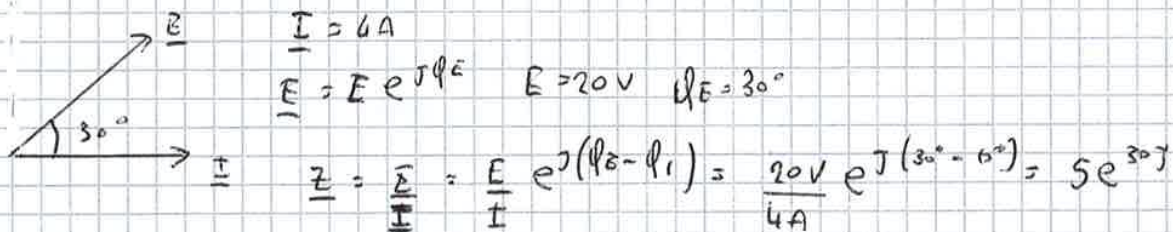 E
I = 4A
E = E e^jφE E = 20V φE = 30°
30°
I
Z = E/I = E/I e^j(φE - φI) = 20V/4A e^j(30° - 0°) = 5e^30j